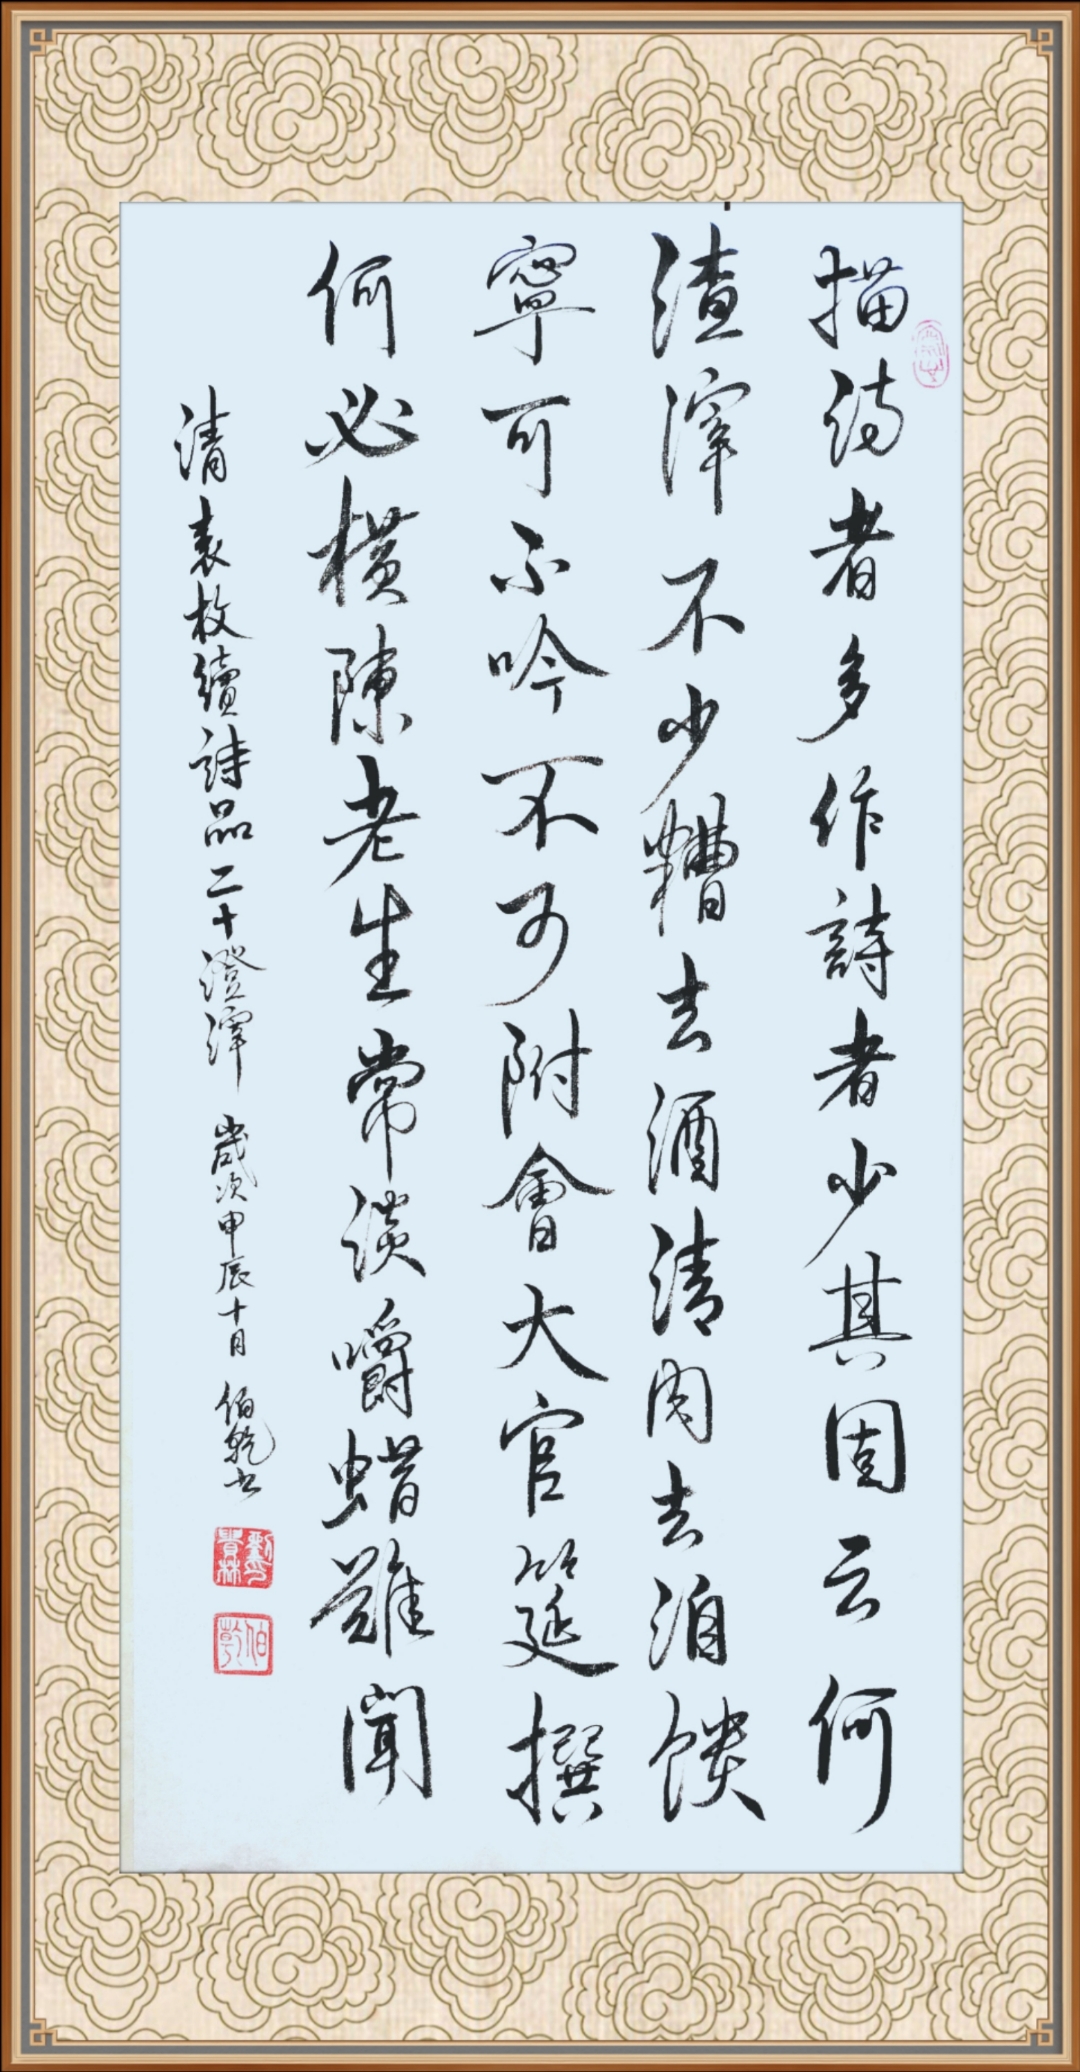 描诗者多作詩者少其固云何
渣滓不少糟去酒清肉去洎馈
寧可不吟不可附會大官筵撰
何必横陳老生常谈嚼蜡難聞
清袁枚續詩品二十澄滓 歲次甲辰十月 伯乾书
伯乾